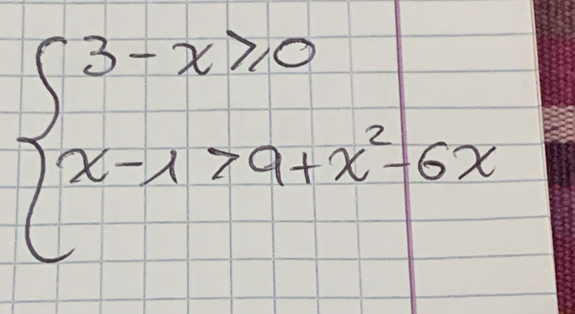 3 - x ⩾ 0
x - 1 > 9 + x² - 6x